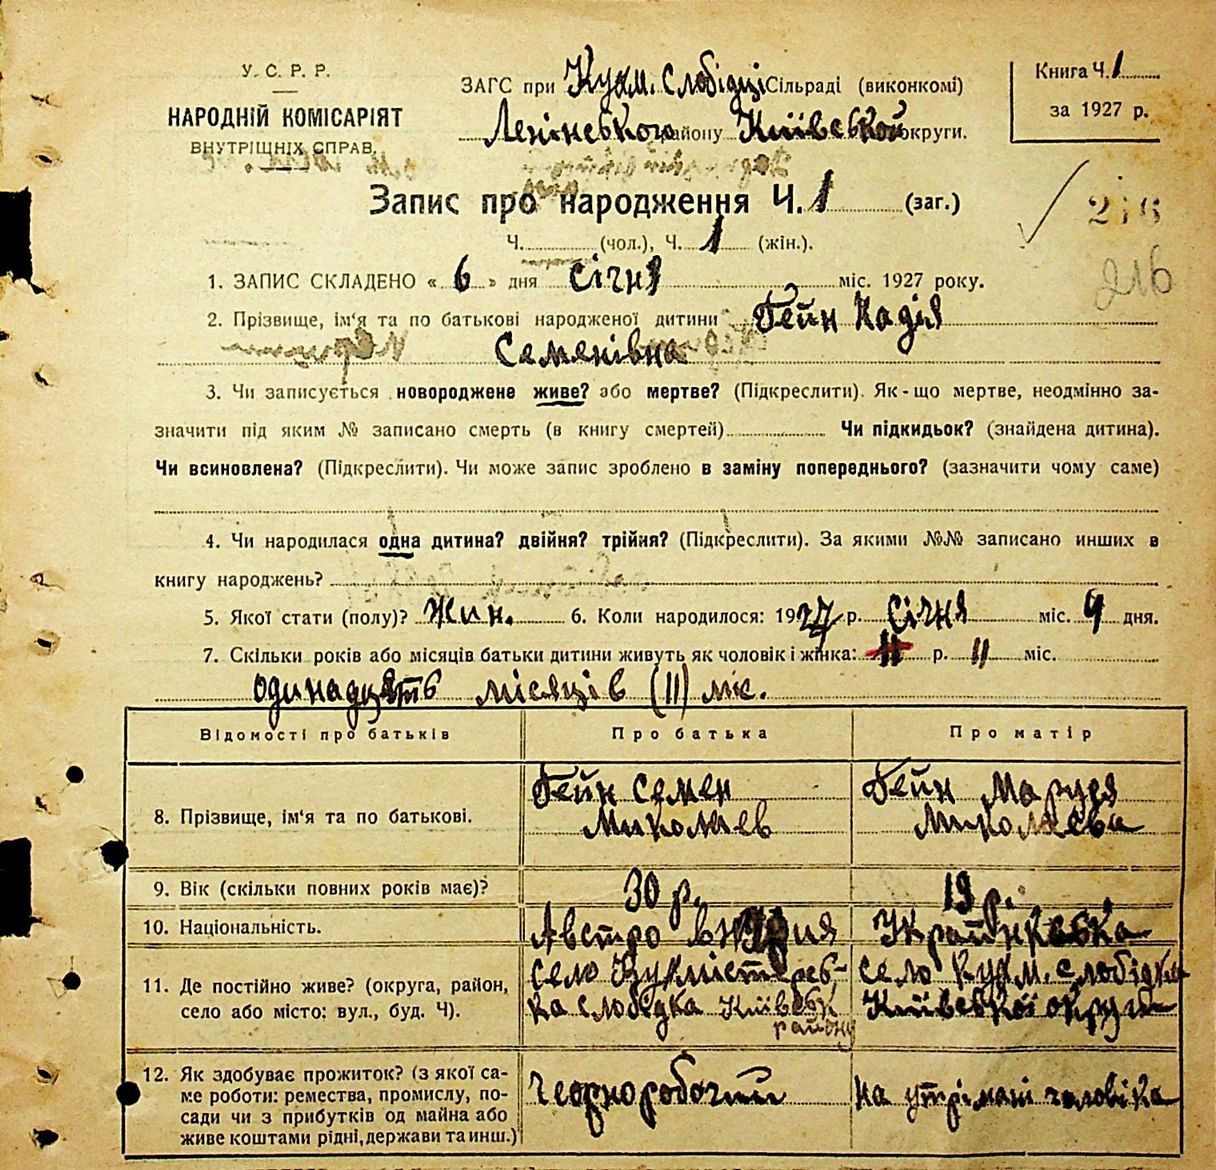 У. С. Р. Р.
НАРОДНІЙ КОМІСАРІЯТ
ВНУТРІЩНІХ СПРАВ.
ЗАГС при Кухм. Слобідці Сільраді (виконкомі)
Ленінського району Київськой округи.
Книга Ч. 1
за 1927 р.
Запис про народження Ч. 1 (заг.)
Ч. (чол.), Ч. 1 (жін.).
216
216
1. ЗАПИС СКЛАДЕНО « 6 » дня Січня міс. 1927 року.
2. Прізвище, ім'я та по батькові народженої дитини Гейн Надія
Семенівна
3. Чи записується новороджене живе? або мертве? (Підкреслити). Як-що мертве, неодмінно за-
значити під яким № записано смерть (в книгу смертей) Чи підкидьок? (знайдена дитина).
Чи всиновлена? (Підкреслити). Чи може запис зроблено в заміну попереднього? (зазначити чому саме)
4. Чи народилася одна дитина? двійня? трійня? (Підкреслити). За якими №№ записано инших в
книгу народжень?
5. Якої стати (полу)? Жин. 6. Коли народилося: 1927 р. Січня міс. 4 дня.
7. Скільки років або місяців батьки дитини живуть як чоловік і жінка: 11 р. 11 міс.
одинадцять місяців (11) міс.
Відомості про батьків Про батька Про матір
8. Прізвище, ім'я та по батькові. Гейн Семен Гейн Маруся
Миколаев Миколаева
9. Вік (скільки повних років має)? 30 р. 19 р.
10. Національність. Австро Українська
11. Де постійно живе? (округа, район, село або місто: вул., буд. Ч). село Кухмістерсь-
ка слобідка Київськ
району
село Кухм. слобідка
Київської округи
12. Як здобуває прожиток? (з якої са-
ме роботи: ремества, промислу, по-
сади чи з прибутків од майна або
живе коштами рідні, держави та инш.)
Чеорноробочий
на утрімані чоловіка